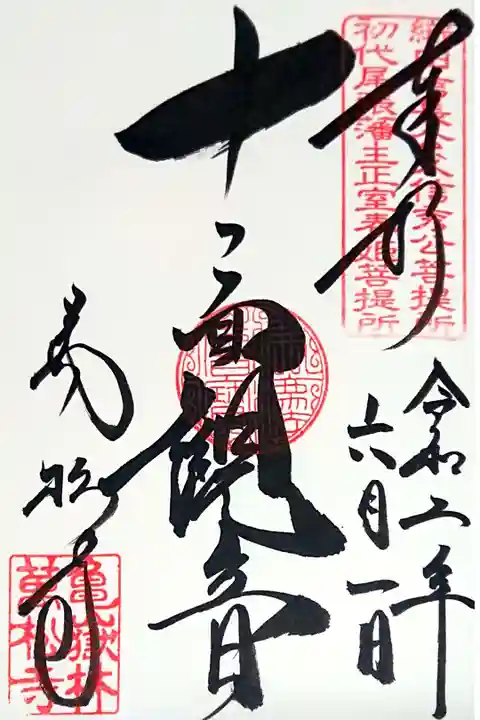 奉拝
織田信長 信秀公菩提所
初代尾張藩主正室春姫菩提所
令和二年
六月一日
十一面観音
萬松寺
龜嶽林
萬松寺